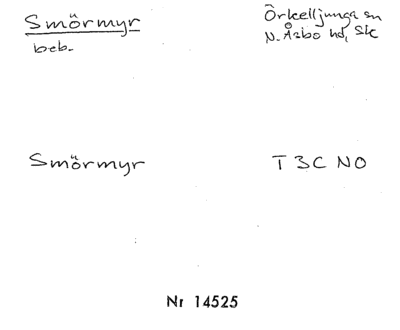 Smörmyr
beb.
Örkelljunga sn
N. Åsbo hd, Sk
Smörmyr
T 3C NO
Nr 14525